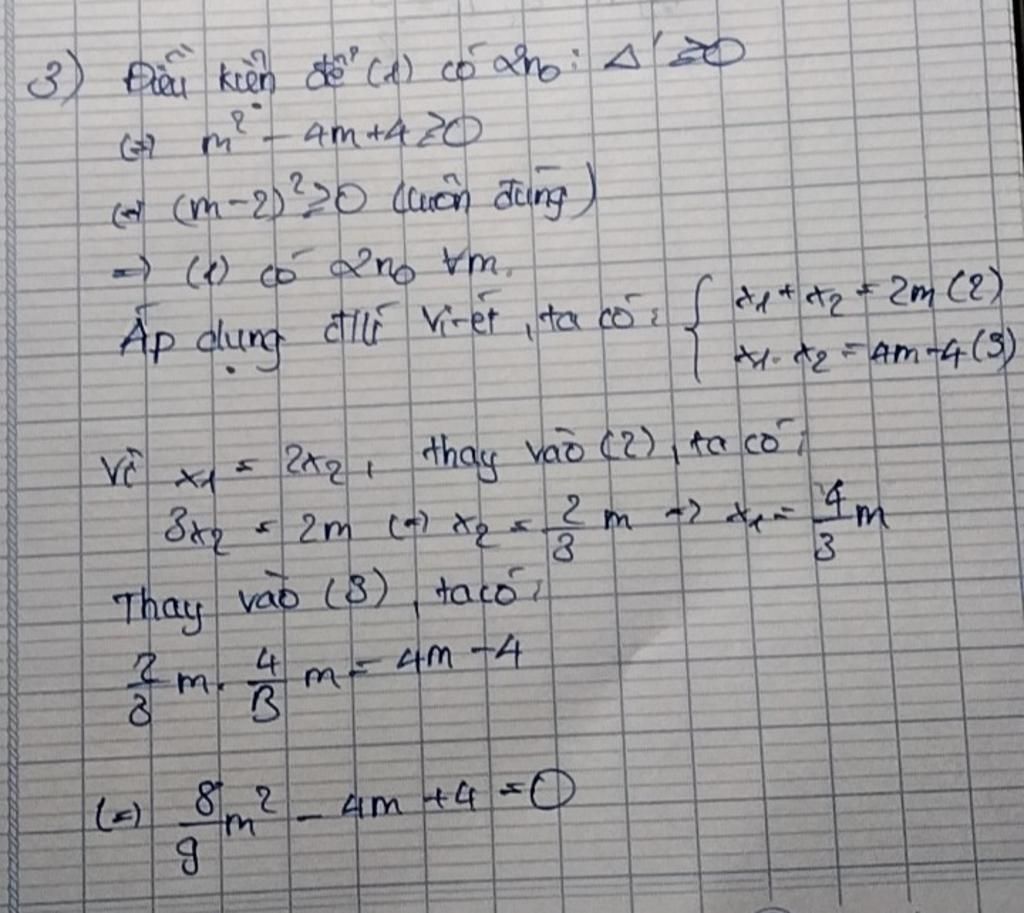 3) Điều kiện để (1) có 2no : Δ' ≥0
(=) m² - 4m+4 ≥0
(=) (m-2)² ≥0 (luôn đúng)
=) (1) có 2no ∀m.
Áp dụng đlí Vi-ét, ta có : { x1 + x2 = 2m (2)
x1. x2 = 4m-4 (3)
Vì x1 = 2x2, thay vào (2), ta có:
3x2 = 2m (=) x2 = 2/3 m => x1 = 4/3 m
Thay vào (3), ta có:
2/3 m. 4/3 m = 4m-4
(=) 8/9 m² - 4m +4 =0